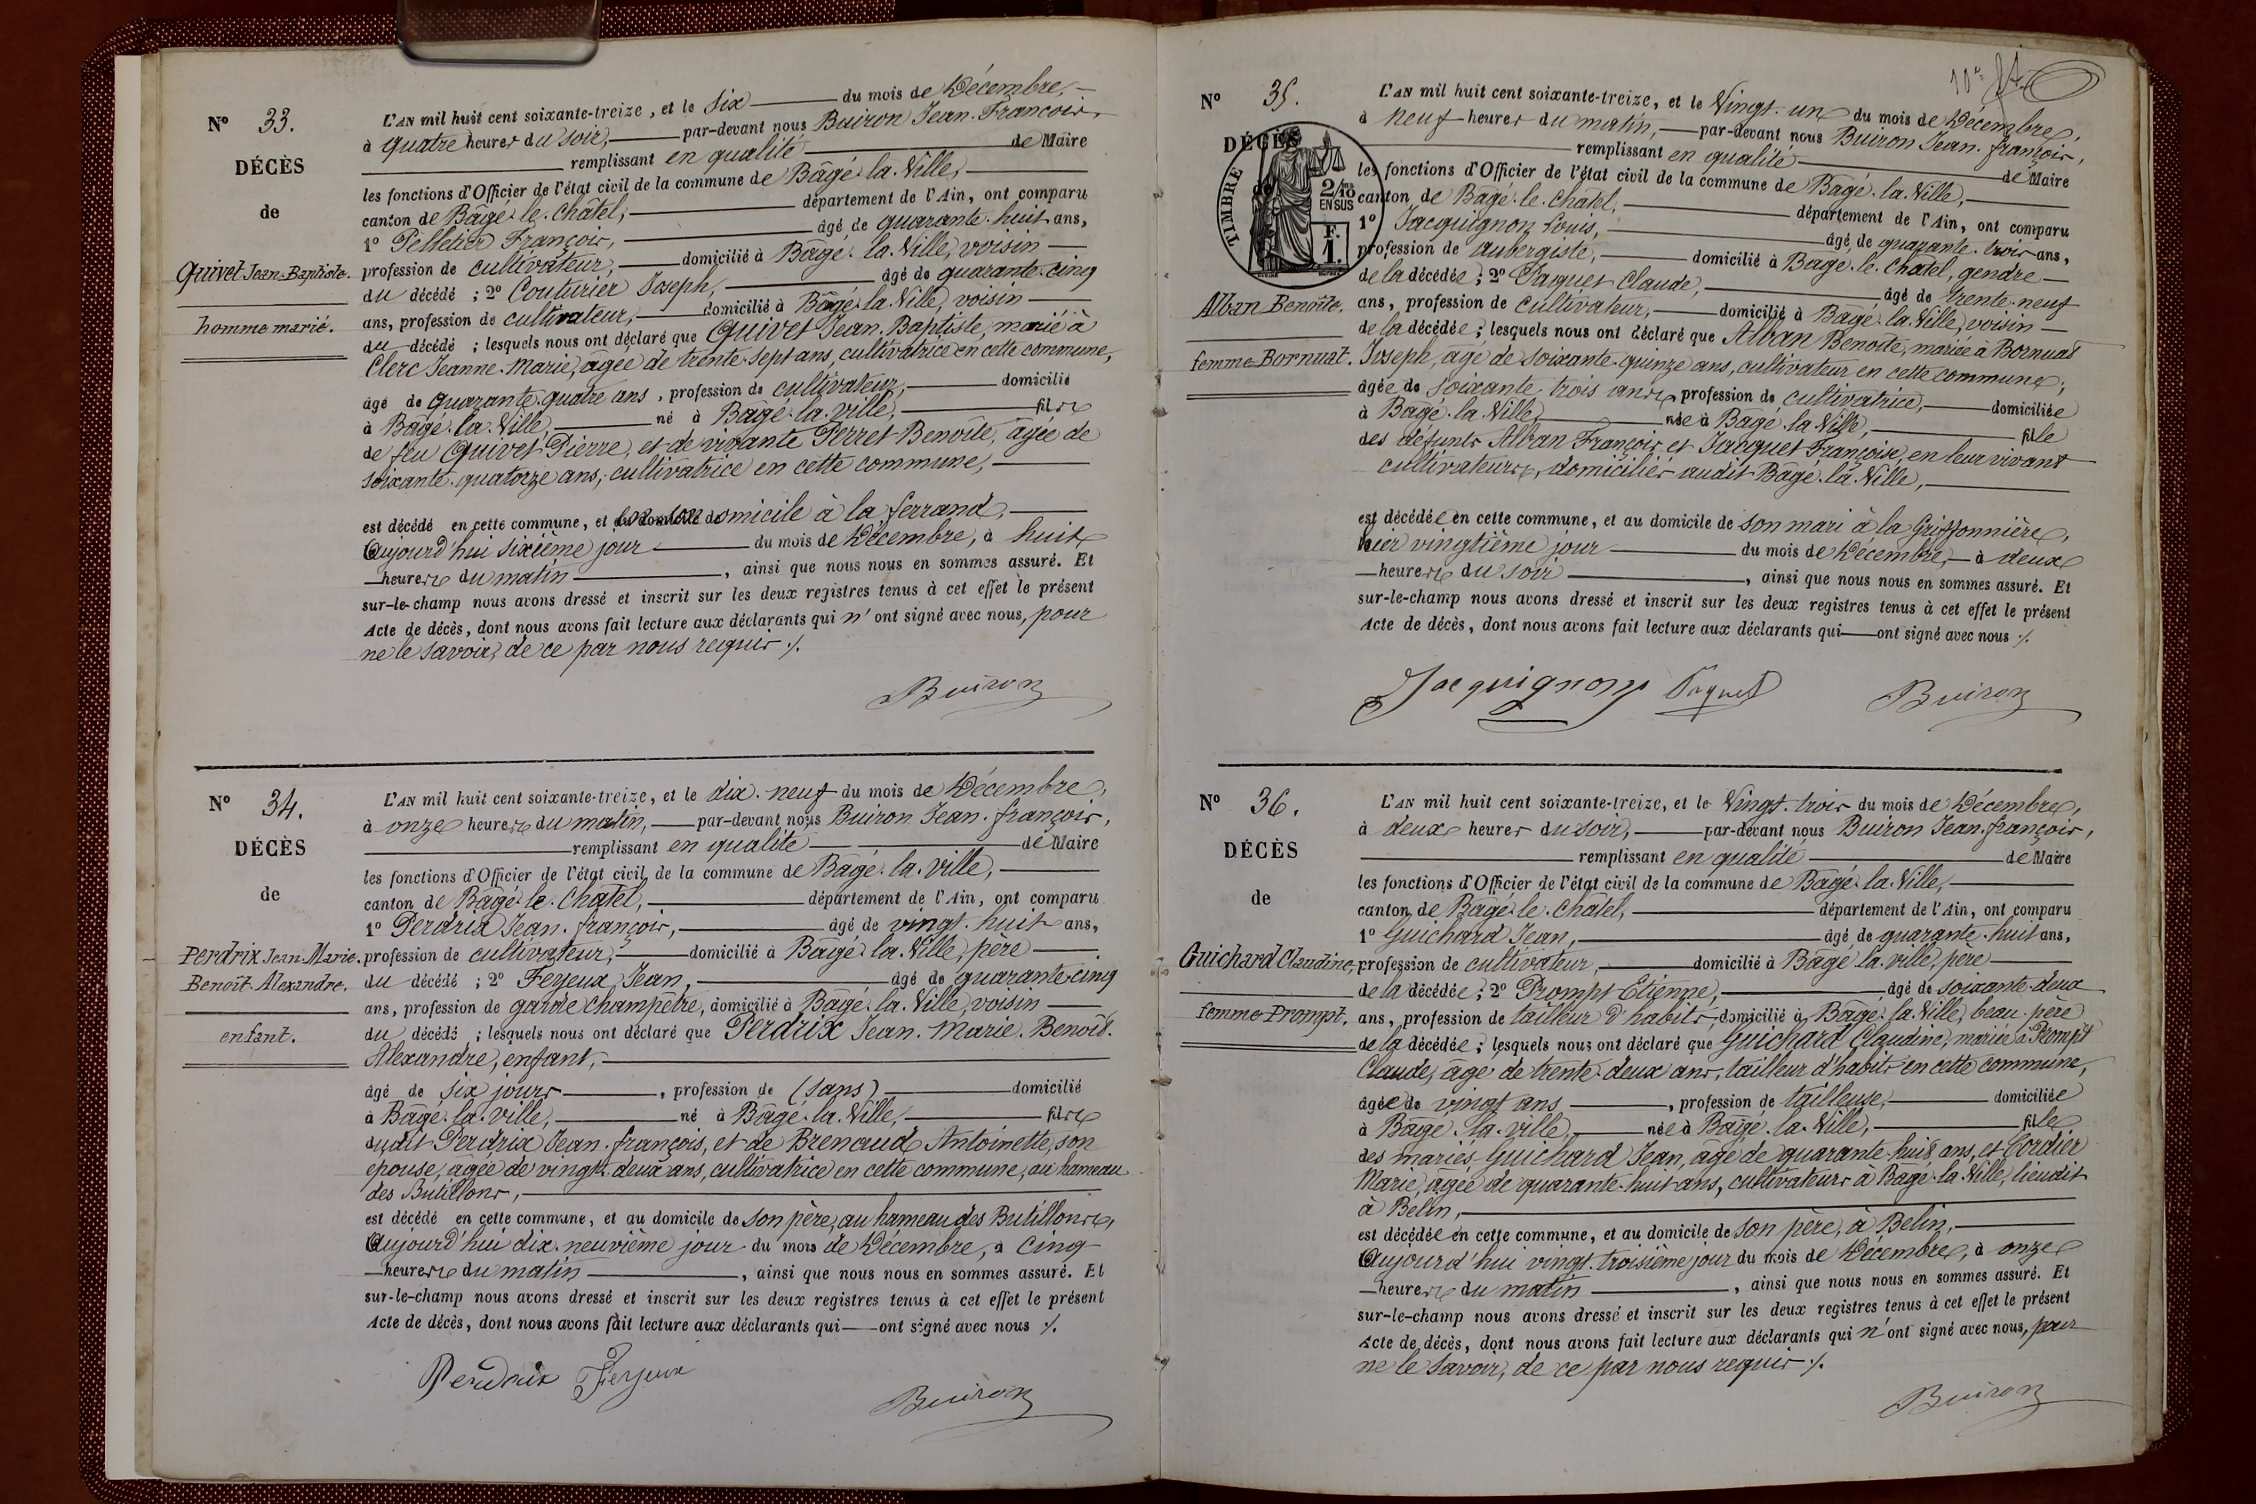 N° 33.
DÉCÈS
de
Quivet Jean-Baptiste.
homme marié.
L'AN mil huit cent soixante-treize, et le Six du mois de Décembre,
à quatre heures du soir, par-devant nous Buiron Jean-François,
remplissant en qualité de Maire
les fonctions d'Officier de l'état civil de la commune de Bâgé-la-Ville,
canton de Bâgé-le-Châtel, département de l'Ain, ont comparu
1° Pelletier François, âgé de quarante-huit ans,
profession de cultivateur, domicilié à Bâgé-la-Ville, voisin
du décédé ; 2° Couturier Joseph, âgé de quarante-cinq
ans, profession de cultivateur, domicilié à Bâgé-la-Ville, voisin
du décédé ; lesquels nous ont déclaré que Quivet Jean-Baptiste, marié à
Clerc Jeanne-Marie, âgée de trente-sept ans, cultivatrice en cette commune,
âgé de quarante-quatre ans, profession de cultivateur, domicilié
à Bâgé-la-Ville, né à Bâgé-la-Ville, fils
de feu Quivet Pierre, et de vivante Perret Benoîte, âgée de
soixante-quatorze ans, cultivatrice en cette commune,
est décédé en cette commune, et domicile à la ferrand,
Aujourd'hui sixième jour du mois de Décembre, à huit
heures du matin, ainsi que nous nous en sommes assuré. Et
sur-le-champ nous avons dressé et inscrit sur les deux registres tenus à cet effet le présent
Acte de décès, dont nous avons fait lecture aux déclarants qui n'ont signé avec nous, pour
ne le savoir, de ce par nous requis ./.
Buiron
N° 34.
DÉCÈS
de
Perdrix Jean-Marie.
Benoît-Alexandre.
enfant.
L'AN mil huit cent soixante-treize, et le dix-neuf du mois de Décembre,
à onze heures du matin, par-devant nous Buiron Jean-françois,
remplissant en qualité de Maire
les fonctions d'Officier de l'état civil de la commune de Bâgé-la-ville,
canton de Bâgé-le-Châtel, département de l'Ain, ont comparu
1° Perdrix Jean-françois, âgé de vingt-huit ans,
profession de cultivateur, domicilié à Bâgé-la-Ville, père
du décédé ; 2° Feyeux Jean, âgé de quarante-cinq
ans, profession de garde champêtre, domicilié à Bâgé-la-Ville, voisin
du décédé ; lesquels nous ont déclaré que Perdrix Jean-Marie-Benoît-
Alexandre, enfant,
âgé de six jours, profession de (sans) domicilié
à Bâgé-la-ville, né à Bâgé-la-Ville, fils
dudit Perdrix Jean-françois, et de Brenaud Antoinette, son
épouse, âgée de vingt-deux ans, cultivatrice en cette commune, au hameau
des Butillons,
est décédé en cette commune, et au domicile de son père, au hameau des Butillons,
Aujourd'hui dix-neuvième jour du mois de Décembre, à cinq
heures du matin, ainsi que nous nous en sommes assuré. Et
sur-le-champ nous avons dressé et inscrit sur les deux registres tenus à cet effet le présent
Acte de décès, dont nous avons fait lecture aux déclarants qui ont signé avec nous ./.
Perdrix Feyeux
Buiron
N° 35.
DÉCÈS
TIMBRE
2/10 ms
EN SUS
F.
1.
Alban Benoîte.
femme Bornuat.
L'AN mil huit cent soixante-treize, et le Vingt-un du mois de Décembre,
à neuf heures du matin, par-devant nous Buiron Jean-françois,
remplissant en qualité de Maire
les fonctions d'Officier de l'état civil de la commune de Bâgé-la-Ville,
canton de Bâgé-le-Châtel, département de l'Ain, ont comparu
1° Jacquignon Louis, âgé de quarante-trois ans,
profession de aubergiste, domicilié à Bâgé-le-Châtel, gendre
de la décédée ; 2° Paquet Claude, âgé de trente-neuf
ans, profession de cultivateur, domicilié à Bâgé-la-Ville, voisin
de la décédée ; lesquels nous ont déclaré que Alban Benoîte, mariée à Bornuat
Joseph, âgé de soixante-quinze ans, cultivateur en cette commune,
âgée de soixante-trois ans, profession de cultivatrice, domiciliée
à Bâgé-la-Ville, née à Bâgé-la-Ville, fille
des défunts Alban François, et Jacquet Françoise, en leur vivant
cultivateurs, domiciliés audit Bâgé-la-Ville,
est décédée en cette commune, et au domicile de son mari à la Griffonnière,
hier vingtième jour du mois de Décembre, à deux
heures du soir, ainsi que nous nous en sommes assuré. Et
sur-le-champ nous avons dressé et inscrit sur les deux registres tenus à cet effet le présent
Acte de décès, dont nous avons fait lecture aux déclarants qui ont signé avec nous ./.
Jacquignon Paquet Buiron
N° 36.
DÉCÈS
de
Guichard Claudine,
femme Prompt.
L'AN mil huit cent soixante-treize, et le Vingt-trois du mois de Décembre,
à deux heures du soir, par-devant nous Buiron Jean-françois,
remplissant en qualité de Maire
les fonctions d'Officier de l'état civil de la commune de Bâgé-la-Ville,
canton de Bâgé-le-Châtel, département de l'Ain, ont comparu
1° Guichard Jean, âgé de quarante-huit ans,
profession de cultivateur, domicilié à Bâgé-la-ville, père
de la décédée ; 2° Prompt Etienne, âgé de soixante-deux
ans, profession de tailleur d'habits, domicilié à Bâgé-la-Ville, beau-père
de la décédée ; lesquels nous ont déclaré que Guichard Claudine, mariée à Prompt
Claude, âgé de trente-deux ans, tailleur d'habits en cette commune,
âgée de vingt ans, profession de tailleuse, domiciliée
à Bâgé-la-ville, née à Bâgé-la-Ville, fille
des mariés Guichard Jean, âgé de quarante-huit ans, et Cordier
Marie, âgée de quarante-huit ans, cultivateurs à Bâgé-la-Ville, lieudit
à Belin,
est décédée en cette commune, et au domicile de son père, à Belin,
Aujourd'hui vingt-troisième jour du mois de Décembre, à onze
heures du matin, ainsi que nous nous en sommes assuré. Et
sur-le-champ nous avons dressé et inscrit sur les deux registres tenus à cet effet le présent
Acte de décès, dont nous avons fait lecture aux déclarants qui n'ont signé avec nous, pour
ne le savoir, de ce par nous requis ./.
Buiron